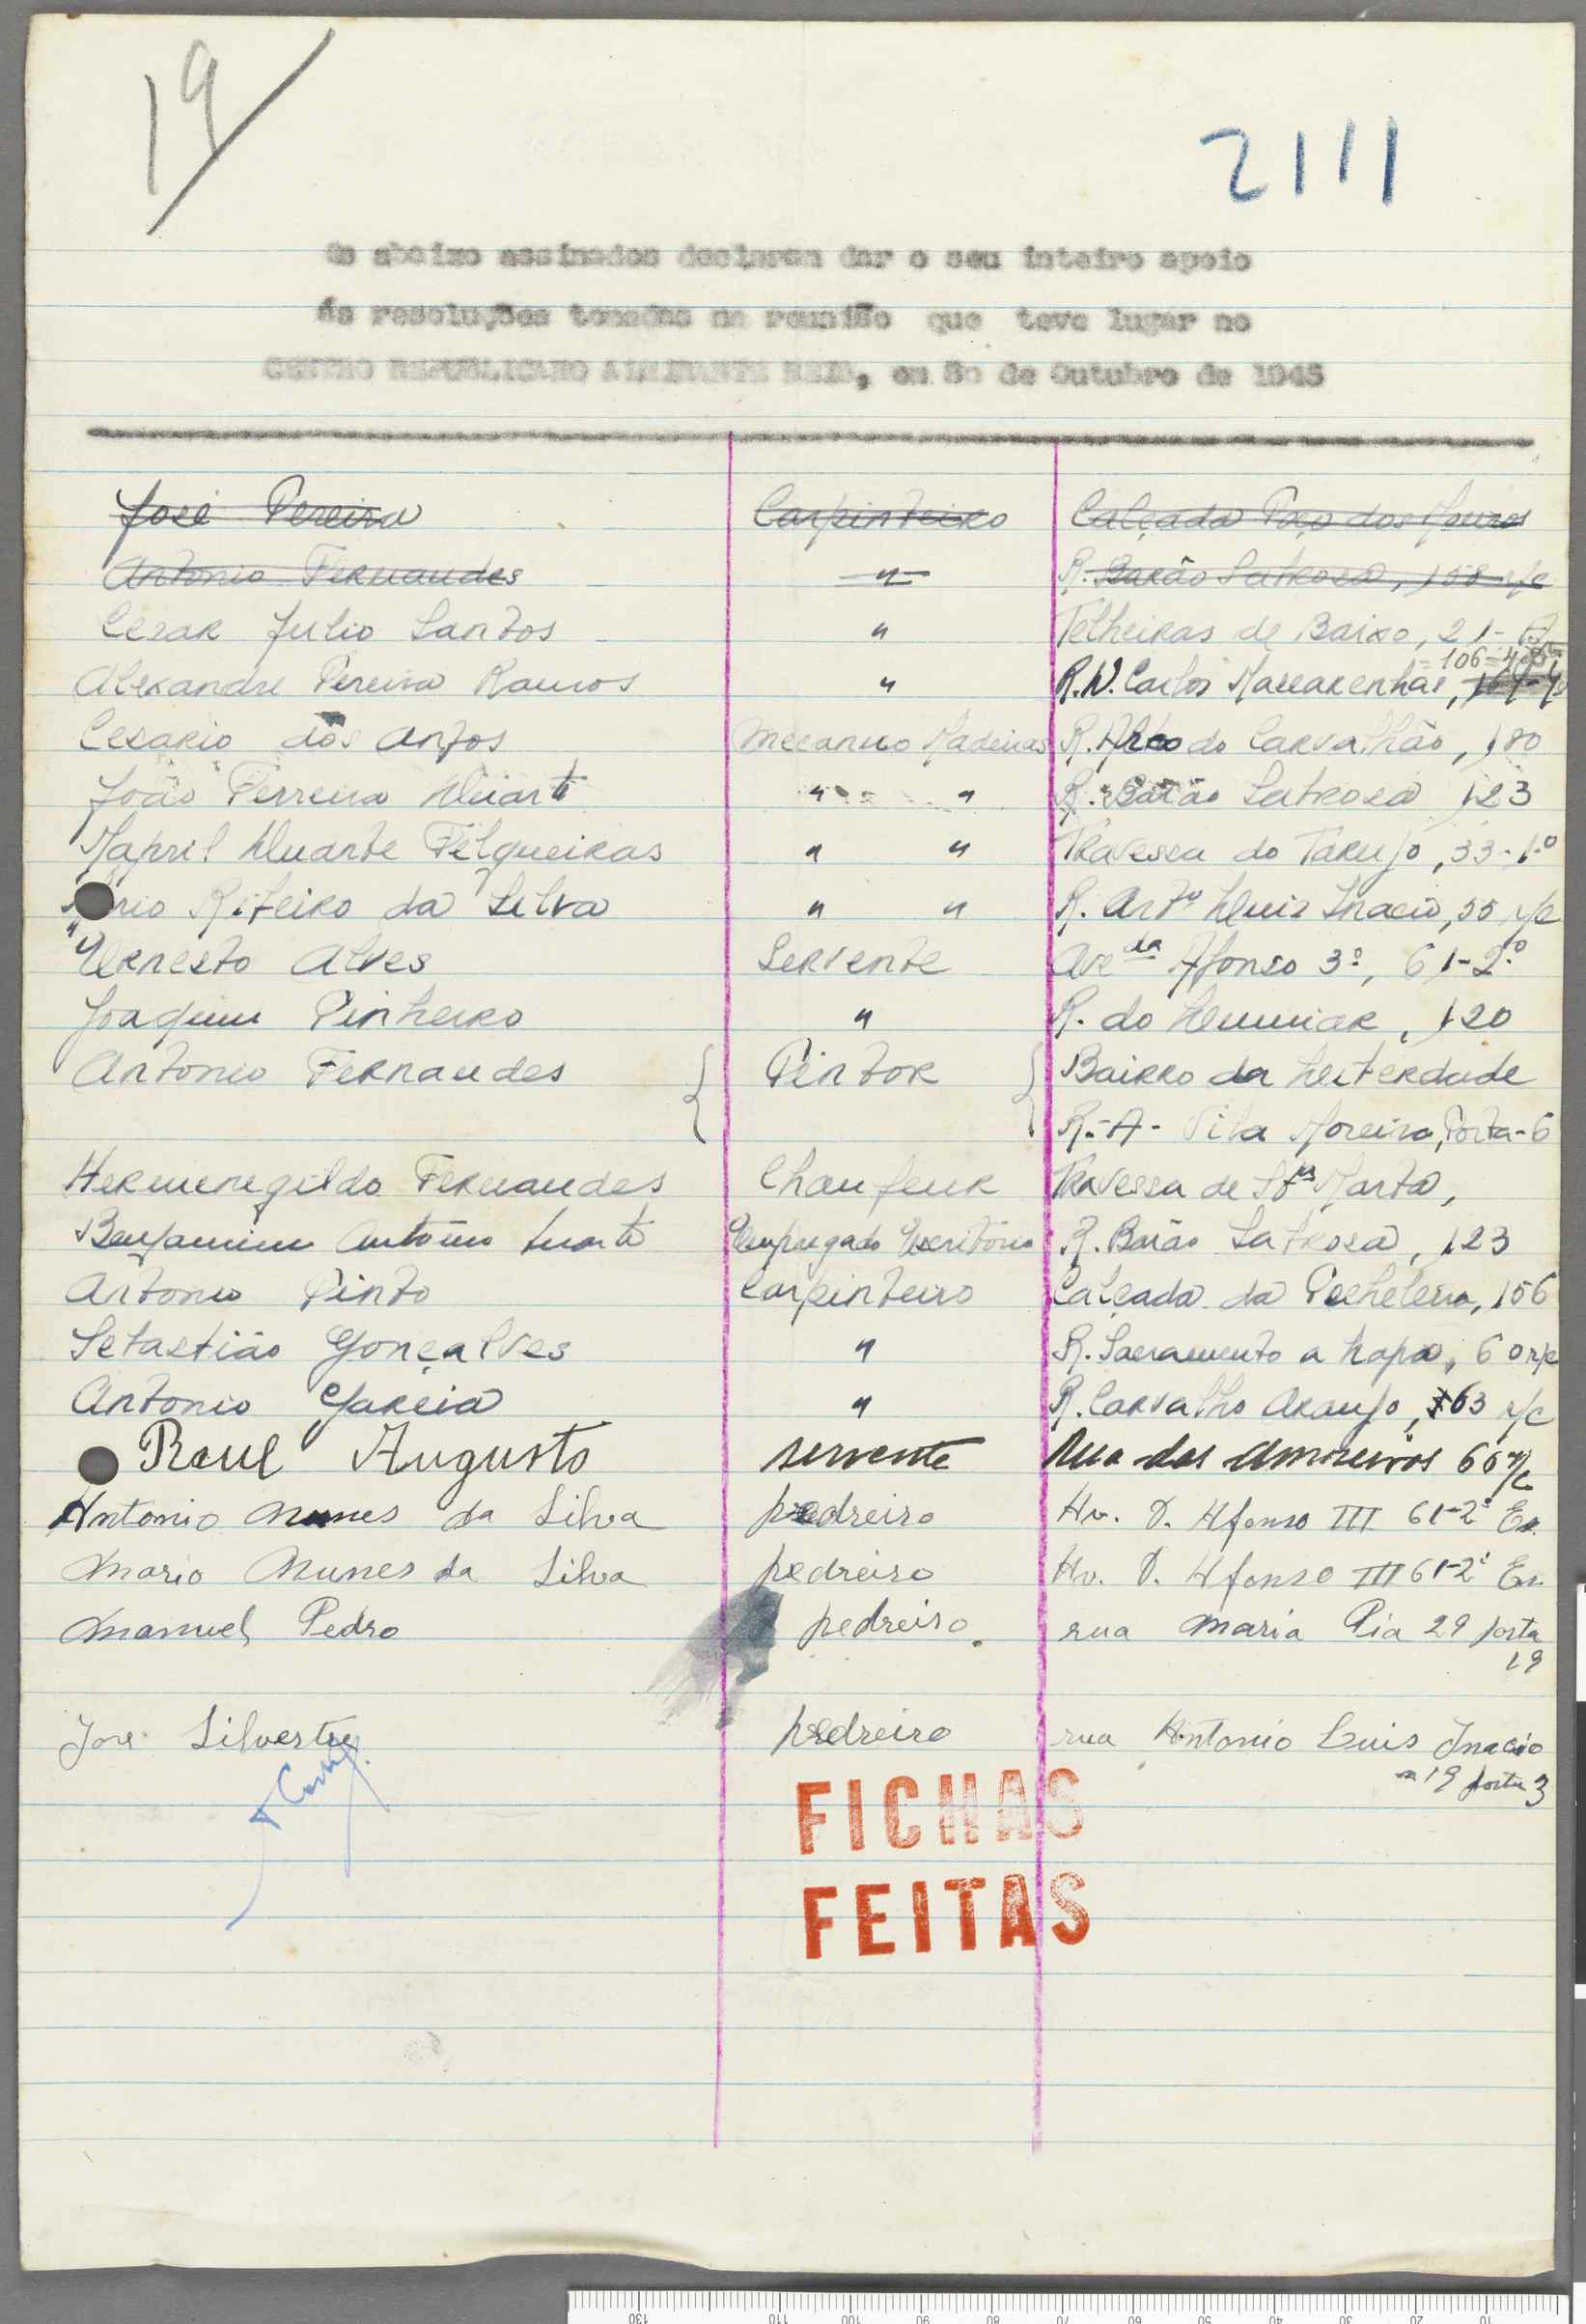 19
2111
Os abaixo assinados declaram dar o seu inteiro apoio
ás resoluções tomadas na reunião que teve lugar no
CENTRO REPUBLICANO ALMIRANTE REIS, em 8o de Outubro de 1945
José Pereira Carpinteiro Calçada Poço dos Mouros
Antonio Fernandes " R. Barão Sabrosa, 158 r/c
Cezar Julio Santos " Telheiras de Baixo, 21-A
106-4º
Alexandre Pereira Ramos " R. D. Carlos Mascarenhas,
Cesario dos Anjos Mecanico Madeiras R. Arco do Carvalhão, 180
João Ferreira Duarte " " R. Barão Sabrosa 123
Mapril Duarte Felgueiras " " Travessa do Tarujo, 33-1.º
Ribeiro da Silva " " R. Antº Luiz Inacio, 55 r/c
Ernesto Alves Servente Avda Afonso 3º, 61-2.º
Joaquim Pinheiro " R. do Lumiar, 120
Antonio Fernandes Pintor Bairro da Liberdade
R.-A- Vila Moreira, Porta-6
Hermenegildo Fernandes Chaufeur Travessa de Stª Marta,
Benjamim Antonio Duarte Empregado Escritório R. Barão Sabrosa, 123
Antonio Pinto Carpinteiro Calçada da Picheleira, 156
Sebastião Gonçalves " R. Sacramento a Lapa, 60 r/c
Antonio Garcia " R. Carvalho Araujo, 163 r/c
Raul Augusto servente Rua das Amoreiras 66 r/c
Antonio Nunes da Silva pedreiro Av. D. Afonso III 61-2º Es.
Mario Nunes da Silva pedreiro Av. D. Afonso III 61-2º Es.
Manuel Pedro pedreiro. rua Maria Pia 29 porta
19
José Silvestre pedreiro rua Antonio Luis Inacio
nº 19 porta 3
FICHAS
FEITAS
130 110 100 90 80 70 60 50 40 30 20 10